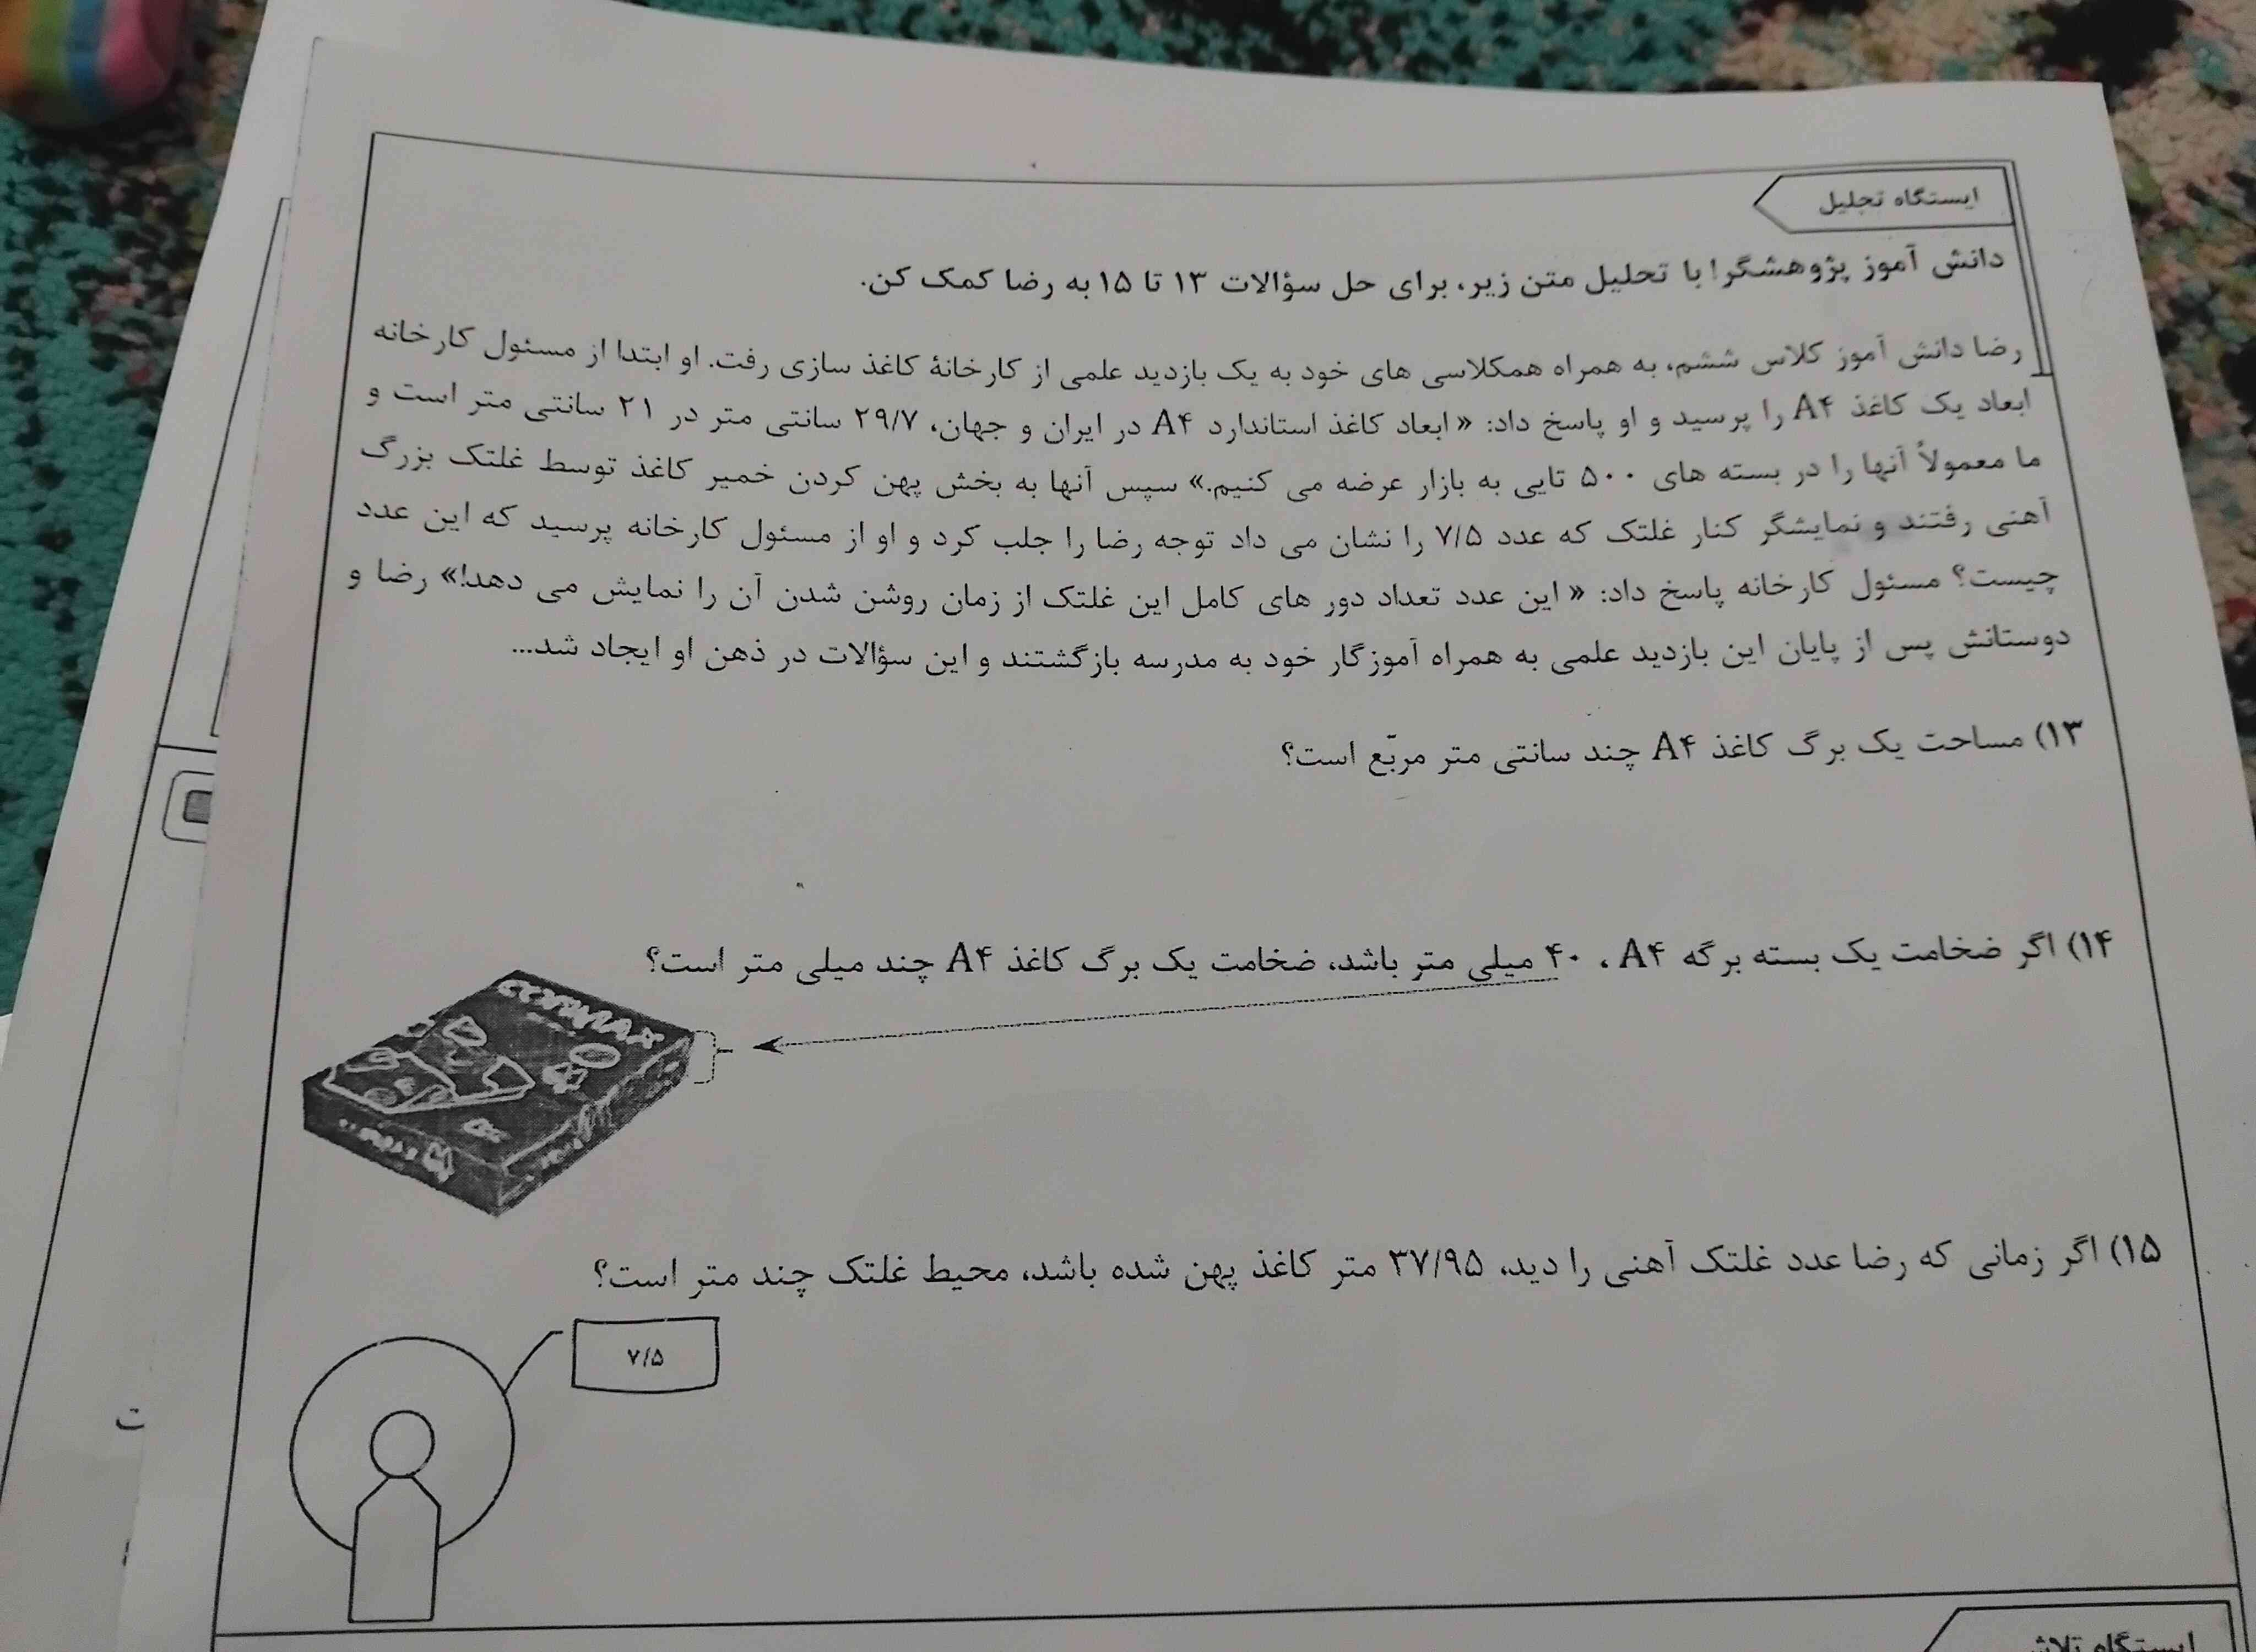 ایستگاه تحلیل
دانش آموز پژوهشگر! با تحلیل متن زیر، برای حل سؤالات ۱۳ تا ۱۵ به رضا کمک کن.
رضا دانش آموز کلاس ششم، به همراه همکلاسی های خود به یک بازدید علمی از کارخانهٔ کاغذ سازی رفت. او ابتدا از مسئول کارخانه
ابعاد یک کاغذ A۴ را پرسید و او پاسخ داد: « ابعاد کاغذ استاندارد A۴ در ایران و جهان، ۲۹/۷ سانتی متر در ۲۱ سانتی متر است و
ما معمولاً آنها را در بسته های ۵۰۰ تایی به بازار عرضه می کنیم.» سپس آنها به بخش پهن کردن خمیر کاغذ توسط غلتک بزرگ
آهنی رفتند و نمایشگر کنار غلتک که عدد ۷/۵ را نشان می داد توجه رضا را جلب کرد و او از مسئول کارخانه پرسید که این عدد
چیست؟ مسئول کارخانه پاسخ داد: « این عدد تعداد دور های کامل این غلتک از زمان روشن شدن آن را نمایش می دهد!» رضا و
دوستانش پس از پایان این بازدید علمی به همراه آموزگار خود به مدرسه بازگشتند و این سؤالات در ذهن او ایجاد شد...
۱۳) مساحت یک برگ کاغذ A۴ چند سانتی متر مربّع است؟
۱۴) اگر ضخامت یک بسته برگه A۴ ، ۴۰ میلی متر باشد، ضخامت یک برگ کاغذ A۴ چند میلی متر است؟
۱۵) اگر زمانی که رضا عدد غلتک آهنی را دید، ۳۷/۹۵ متر کاغذ پهن شده باشد، محیط غلتک چند متر است؟
۷/۵
ایستگاه تلاش